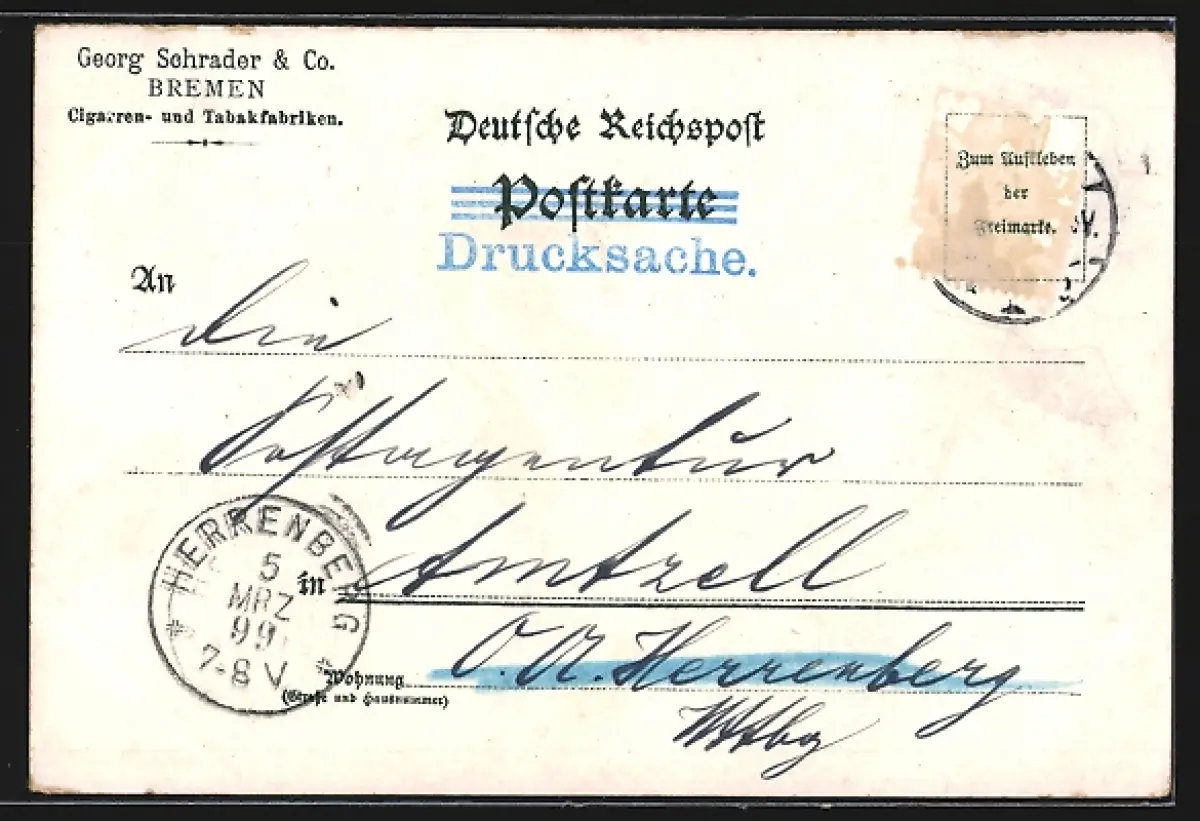 Georg Schrader & Co.
BREMEN
Cigarren- und Tabakfabriken.
Deutsche Reichspost
Postkarte
Drucksache.
Zum Aufkleben
der
Freimarke.
An
die
Postagentur
in Amtzell
O. A. Herrenberg
Wttbg
Wohnung
(Straße und Hausnummer)
HERRENBERG
5
MRZ
99
7-8 V